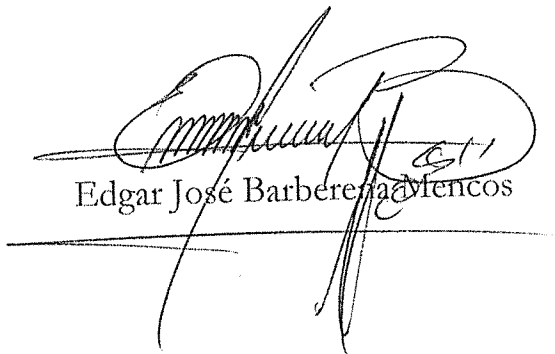 Edgar José Barberena Mencos